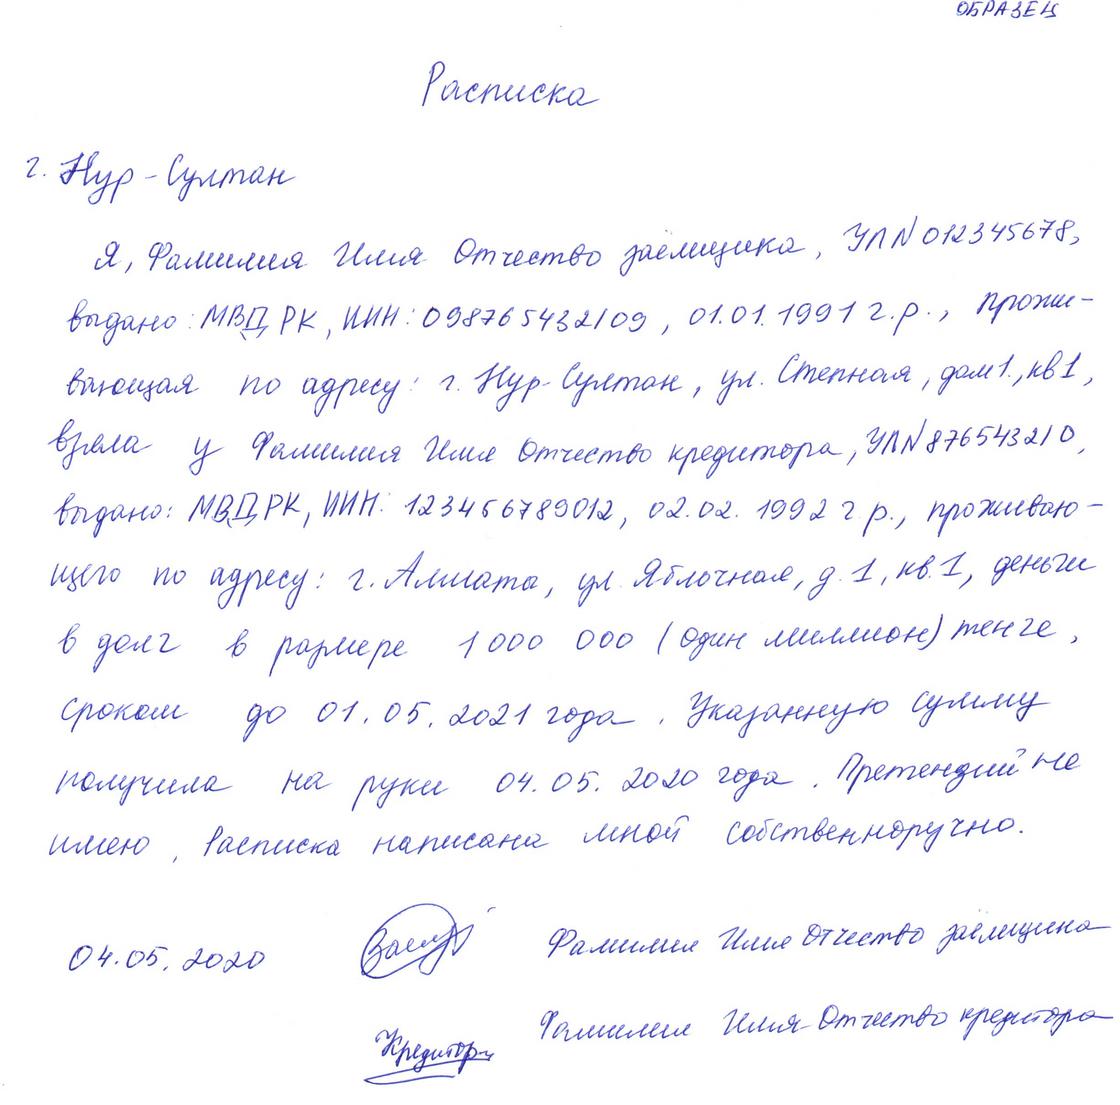 ОБРАЗЕЦ
Расписка
г. Нур-Султан
Я, Фамилия Имя Отчество заёмщика, УЛN012345678,
выдано: МВД РК, ИИН: 098765432109, 01.01.1991 г.р., прожи-
вающая по адресу: г. Нур-Султан, ул. Степная, дом 1, кв 1,
взяла у Фамилия Имя Отчество кредитора, УЛN876543210,
выдано: МВД РК, ИИН: 123456789012, 02.02.1992 г.р., проживаю-
щего по адресу: г. Алмата, ул. Яблочная, д. 1, кв. 1, деньги
в долг в размере 1 000 000 (один миллион) тенге,
сроком до 01.05.2021 года. Указанную сумму
получила на руки 04.05.2020 года. Претензий не
имею, Расписка написана мной собственноручно.
04.05.2020 Заемщ Фамилия Имя Отчество заёмщика
Кредитор Фамилия Имя Отчество кредитора